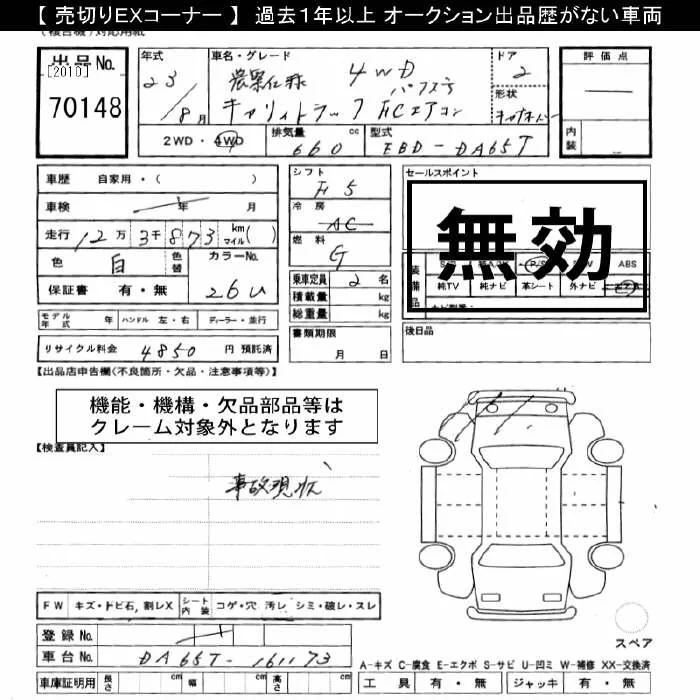 【 売切りEXコーナー 】 過去1年以上 オークション出品歴がない車両
出品No.
[2010]
70148
年式
23/8月
車名・グレード
農業仕様 4WD
キャリイトラック FCエアコン パワステ
ドア
2
形状
評価点
内装
2WD・4WD
排気量 cc
660
型式
EBD-DA65T
車歴 自家用・( )
車検 年 月
走行 12万3千873 km マイル( )
色 白 色替 カラーNo. 26U
保証書 有・無
モデル年式 年 ハンドル 左・右 ディーラー・並行
リサイクル料金 4850 円 預託済
シフト
F5
冷房
AC
燃料
G
乗車定員 2 名
積載量 kg
総重量 kg
書類期限
月 日
セールスポイント
無効
装備品
P/S ABS
純TV 純ナビ 革シート 外ナビ
後日品
【出品店申告欄(不良箇所・欠品・注意事項等)】
機能・機構・欠品部品等は
クレーム対象外となります
【検査員記入】
事故現状
FW キズ・トビ石, 割レX シート内装 コゲ・穴 汚レ シミ・破レ・スレ
登録No.
車台No. DA65T-161173
車庫証明用 長さ cm 幅 cm 高さ cm
スペア
A-キズ C-腐食 E-エクボ S-サビ U-凹ミ W-補修 XX-交換済
工具 有・無 ジャッキ 有・無